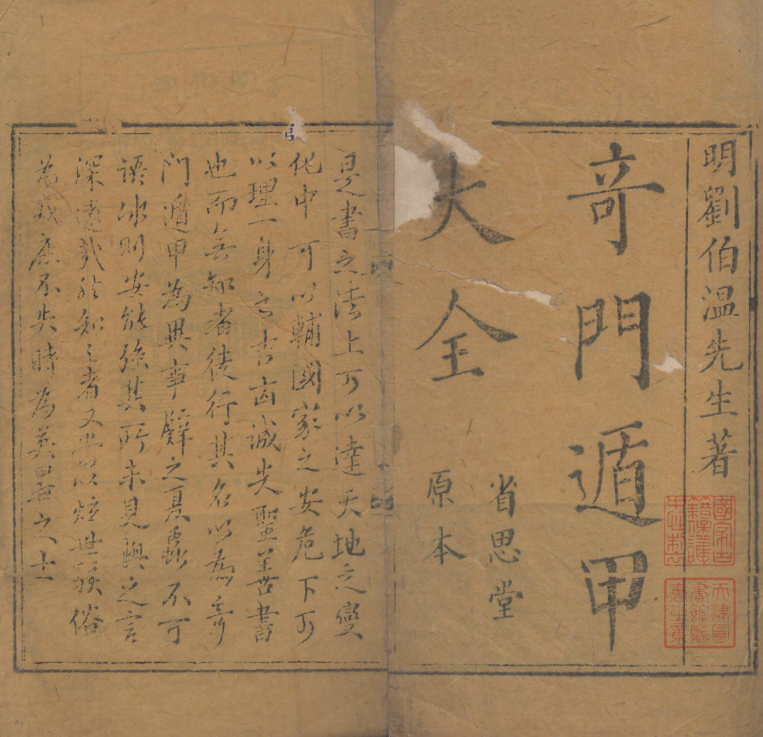 明劉伯溫先生著
竒門遁甲
大全
省思堂
原本
是書之法上可以達天地之變
化中可以輔國家之安危下可
以理一身之吉凶誠聖善書
也而無知者徒行其名以為奇
門遁甲為異事之夏蟲不可
語冰則安能強其所未見與之言
深遠哉於知之者又當以炫世駭俗
為戒庶不失時為之士